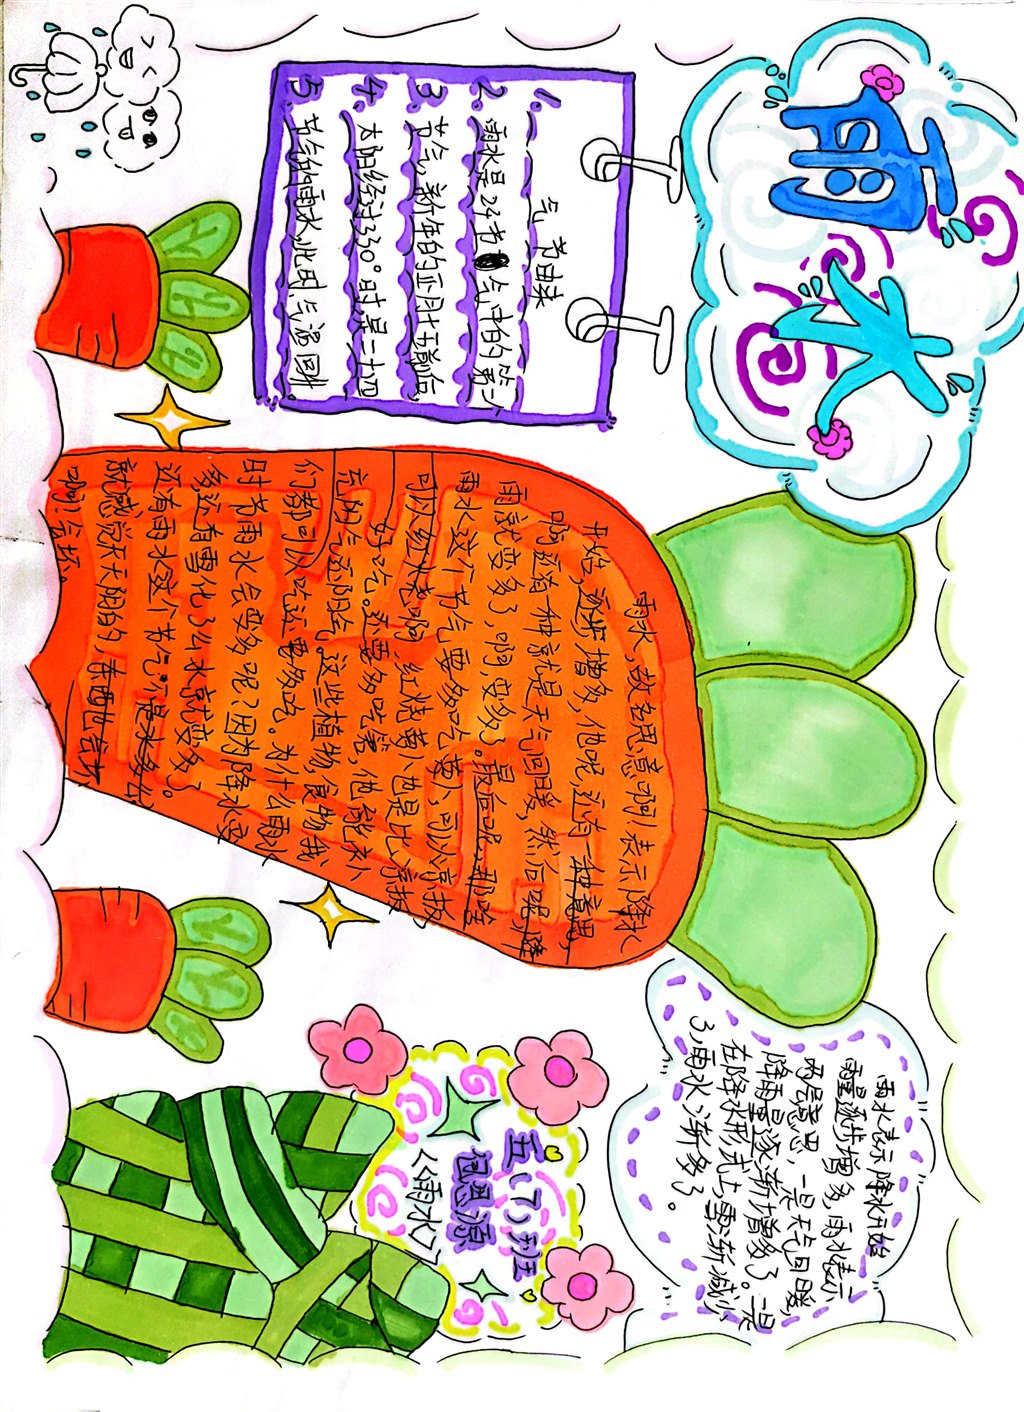 雨水
气节由来
1.
2. 雨水是24节气中的第二个
3. 节气，新年的正月十五前后，
4. 太阳经过330°时，是二十四
5. 节气的雨水，此时，气温回升。
雨水，故名思意啊！表示降水
开始，逐步增多，他呢还有一种意思，
啊还有一种就是天气回暖，然后呢，降
雨就变多了，啊，变多了。最后呢，那啥
雨水这个节气要多吃萝卜，可以凉拔
可以红烧啊，红烧萝卜也是比凉拔
好吃。还要多吃葱，他能衣小
充阳气还阳气。这些植物，食物我
们都可以吃还要多吃。为什么雨水
时节雨水会变多呢？因为降水变
多，还有雪化了么水就变多了。
还有雨水这个节气不是水多么
就感觉天天阴的，东西也会坏
啊！会坏。
雨水表示降水开始
雨量逐步增多，雨水表示
两层意思，一是天气回暖，
降雨量逐渐增多了。二是
在降水形式上，雪渐减少
了，雨水渐多了。
五（7）班
包思源
《雨水》